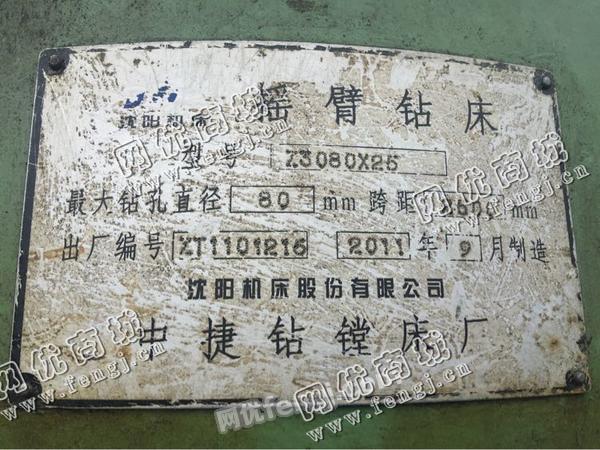 沈阳机床 摇臂钻床
型号 Z3080X25
最大钻孔直径 80 mm 跨距 mm
出厂编号 ZT1101216 2011 年 9 月制造
沈阳机床股份有限公司
中捷钻镗床厂
网优商城
www.fengj.cn
网优商城
www.fengj.cn
网优商城
www.fengj.cn
网优商城
www.fengj.cn